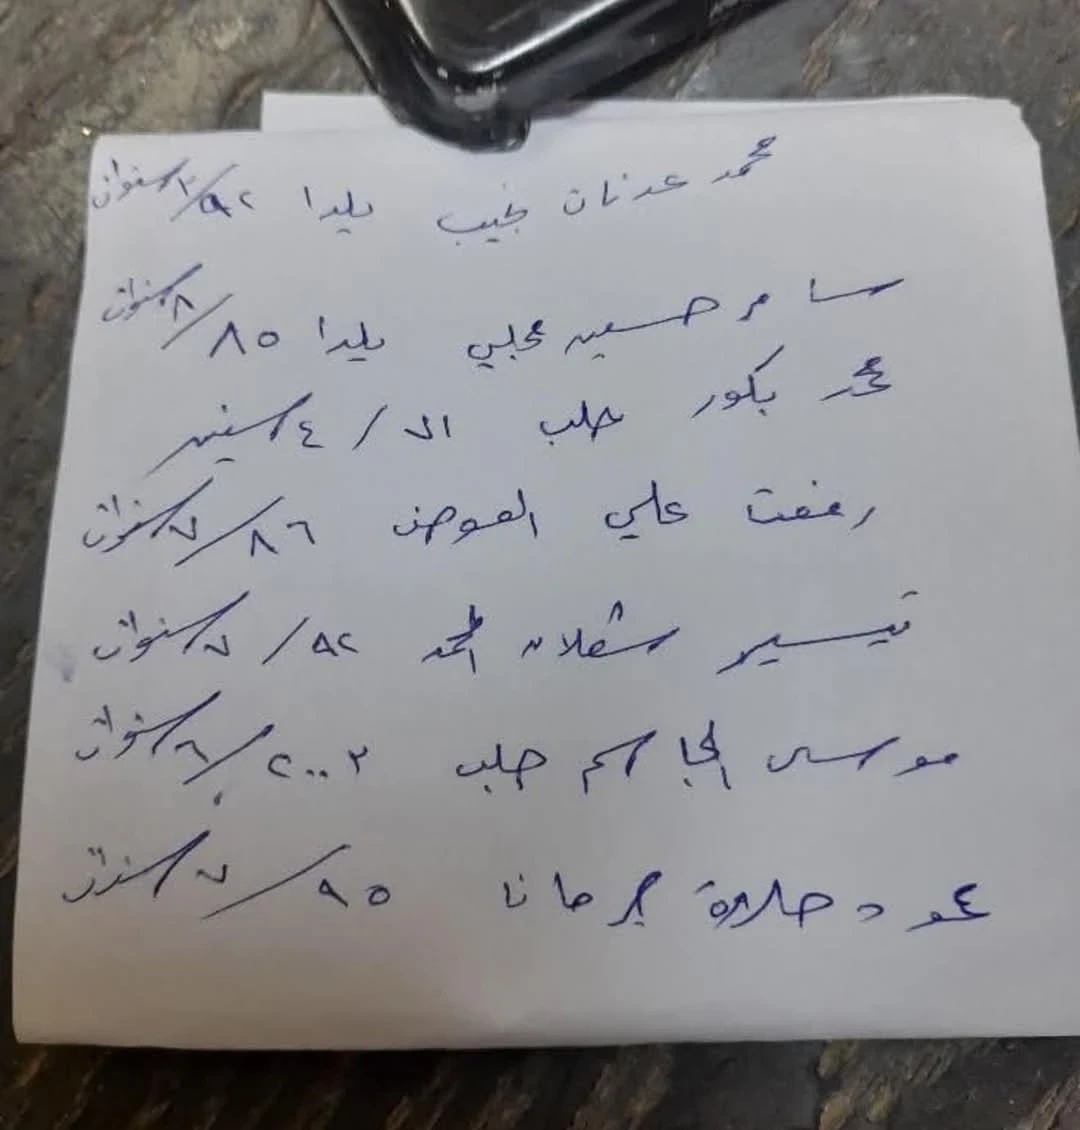 محمد عدنان نجيب يلدا ٩٢/ ٢ سنوات
سامر حسين محلي يلدا ٨٥/ ٨ سنوات
محمد بكور حلب / ٤ سنين
رفعت علي العوض ٨٦/ ٧ سنوات
تيسير شعلان المحمد ٨٢/ ٧ سنوات
موسى الجاسم حلب ٢٠٠٢/ ٦ سنوات
حلاوة جرمانا ٩٥/ ٧ سنوات